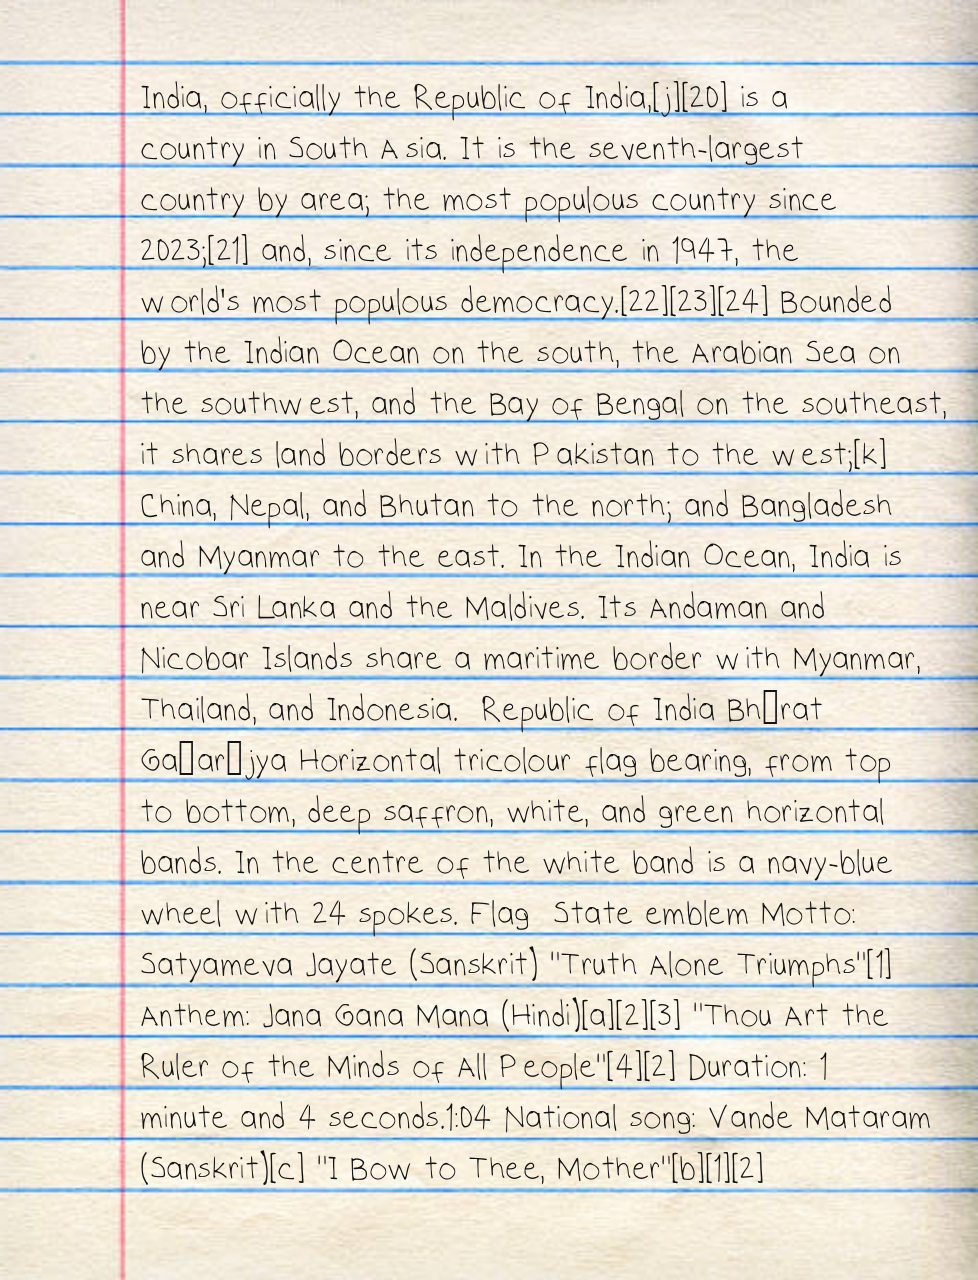 India, officially the Republic of India,[j][20] is a
country in South Asia. It is the seventh-largest
country by area; the most populous country since
2023;[21] and, since its independence in 1947, the
world's most populous democracy.[22][23][24] Bounded
by the Indian Ocean on the south, the Arabian Sea on
the southwest, and the Bay of Bengal on the southeast,
it shares land borders with Pakistan to the west;[k]
China, Nepal, and Bhutan to the north; and Bangladesh
and Myanmar to the east. In the Indian Ocean, India is
near Sri Lanka and the Maldives. Its Andaman and
Nicobar Islands share a maritime border with Myanmar,
Thailand, and Indonesia.  Republic of India Bh▯rat
Ga▯ar▯jya Horizontal tricolour flag bearing, from top
to bottom, deep saffron, white, and green horizontal
bands. In the centre of the white band is a navy-blue
wheel with 24 spokes. Flag  State emblem Motto:
Satyameva Jayate (Sanskrit) "Truth Alone Triumphs"[1]
Anthem: Jana Gana Mana (Hindi)[a][2][3] "Thou Art the
Ruler of the Minds of All People"[4][2] Duration: 1
minute and 4 seconds.1:04 National song: Vande Mataram
(Sanskrit)[c] "I Bow to Thee, Mother"[b][1][2]